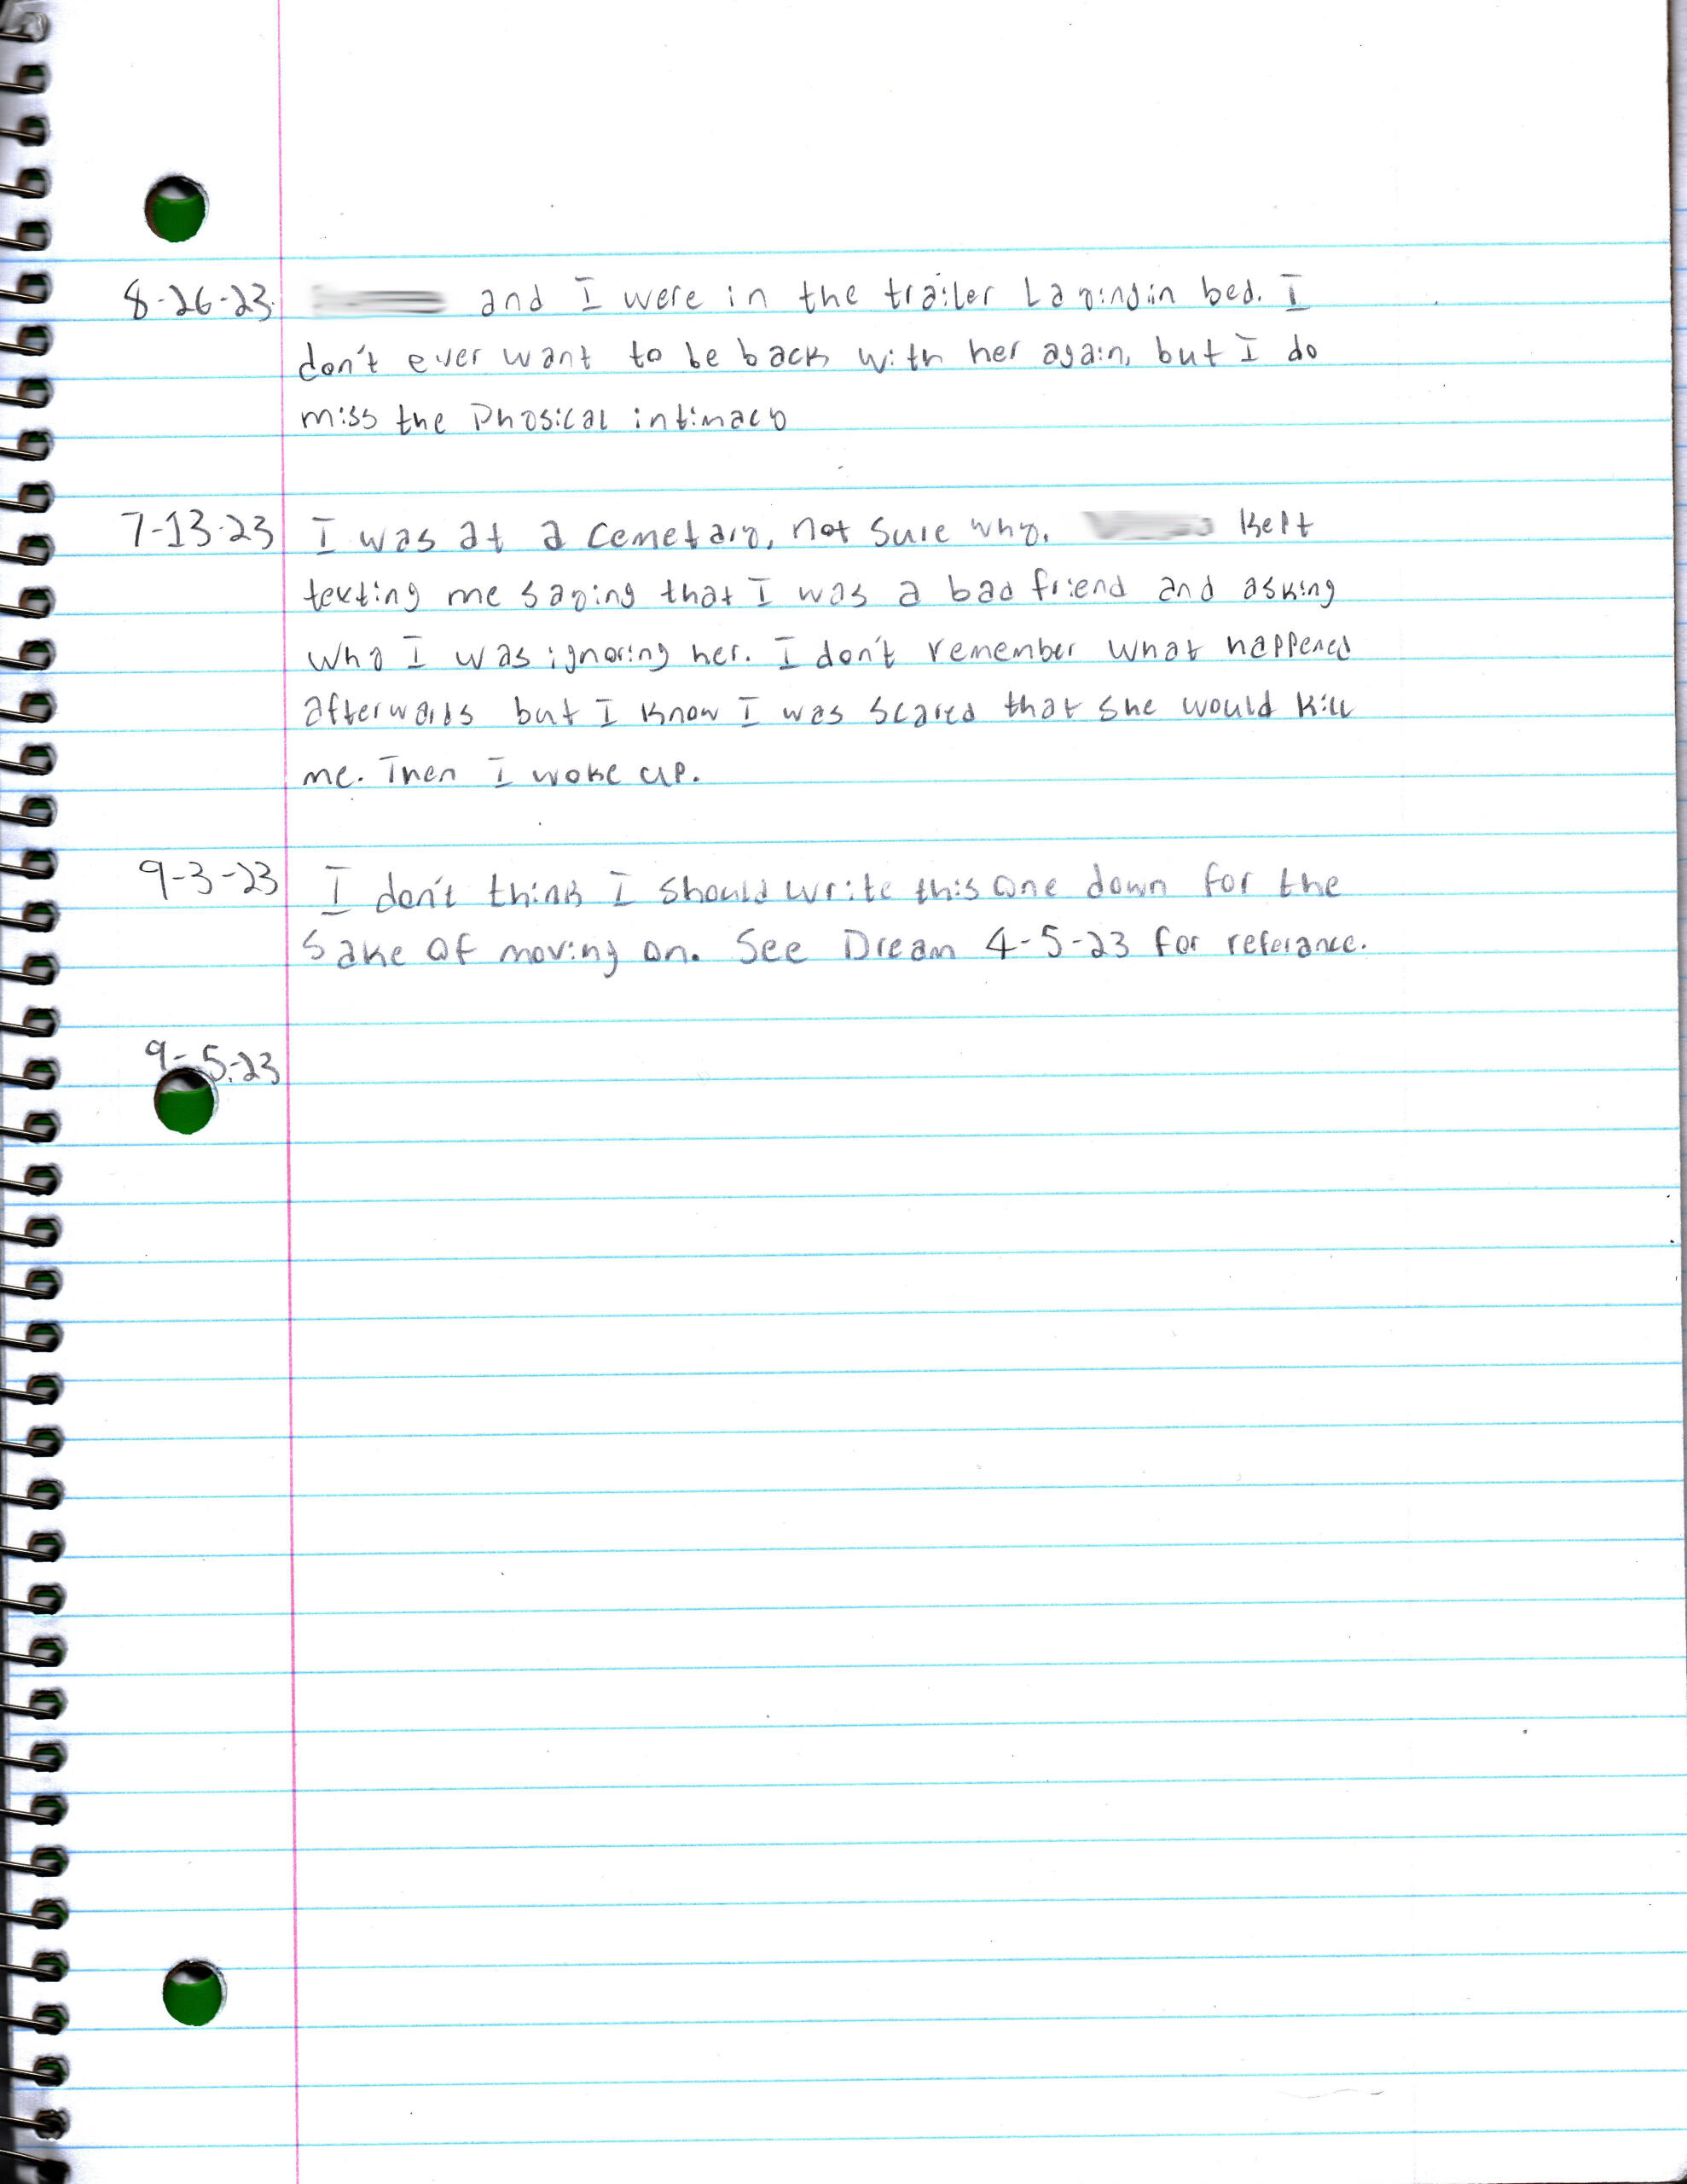 8-26-23 and I were in the trailer Laying in bed. I
don't ever want to be back with her again, but I do
miss the Physical intimacy
7-13-23 I was at a Cemetary, not sure why. Kept
texting me saying that I was a bad friend and asking
why I was ignoring her. I don't remember what happened
afterwards but I know I was scared that she would kill
me. Then I woke up.
9-3-23 I don't think I should write this one down for the
sake of moving on. See Dream 4-5-23 for referance.
9-5-23